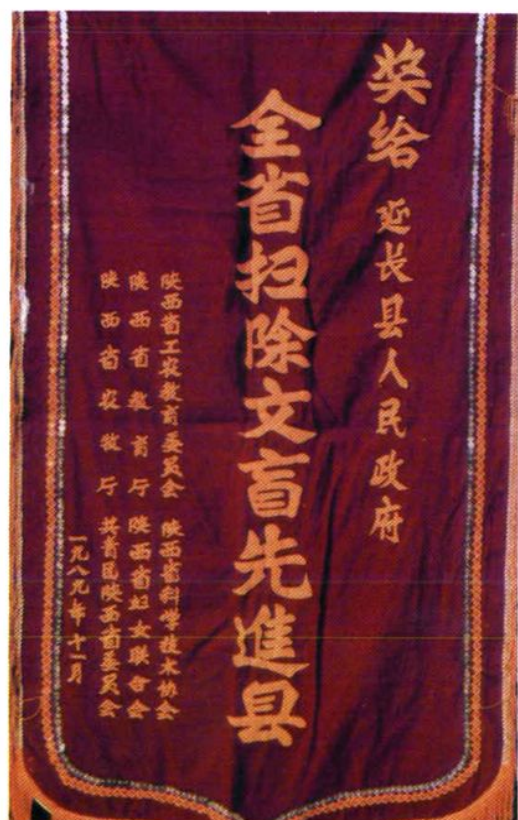 奖给 延长县人民政府
全省扫除文盲先進县
陕西省工农教育委员会 陕西省科学技术协会
陕西省教育厅 陕西省妇女联合会
陕西省农牧厅 共青团陕西省委员会
一九八九年十一月